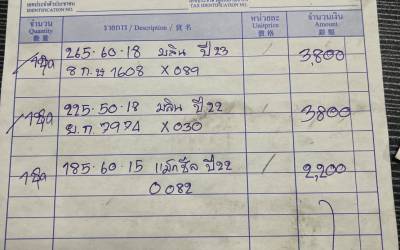 เลขประจำตัวประชาชน
IDENTIFICATION NO.
TAX IDENTIFICATION NO.
จำนวน Quantity 數量 รายการ / Description / 貨名 หน่วยละ Unitprice 價格 จำนวนเงิน Amount 銀額
1ชุด 265-60-18 มลิน ปี 23 / 3,800
8 ก.ษ 1608 X 089
1ชุด 225-50-18 มลิน ปี 22 / 3,800
X 030
1ชุด 185-60-15 แม็กซีส ปี 22 / 2,200
0 082